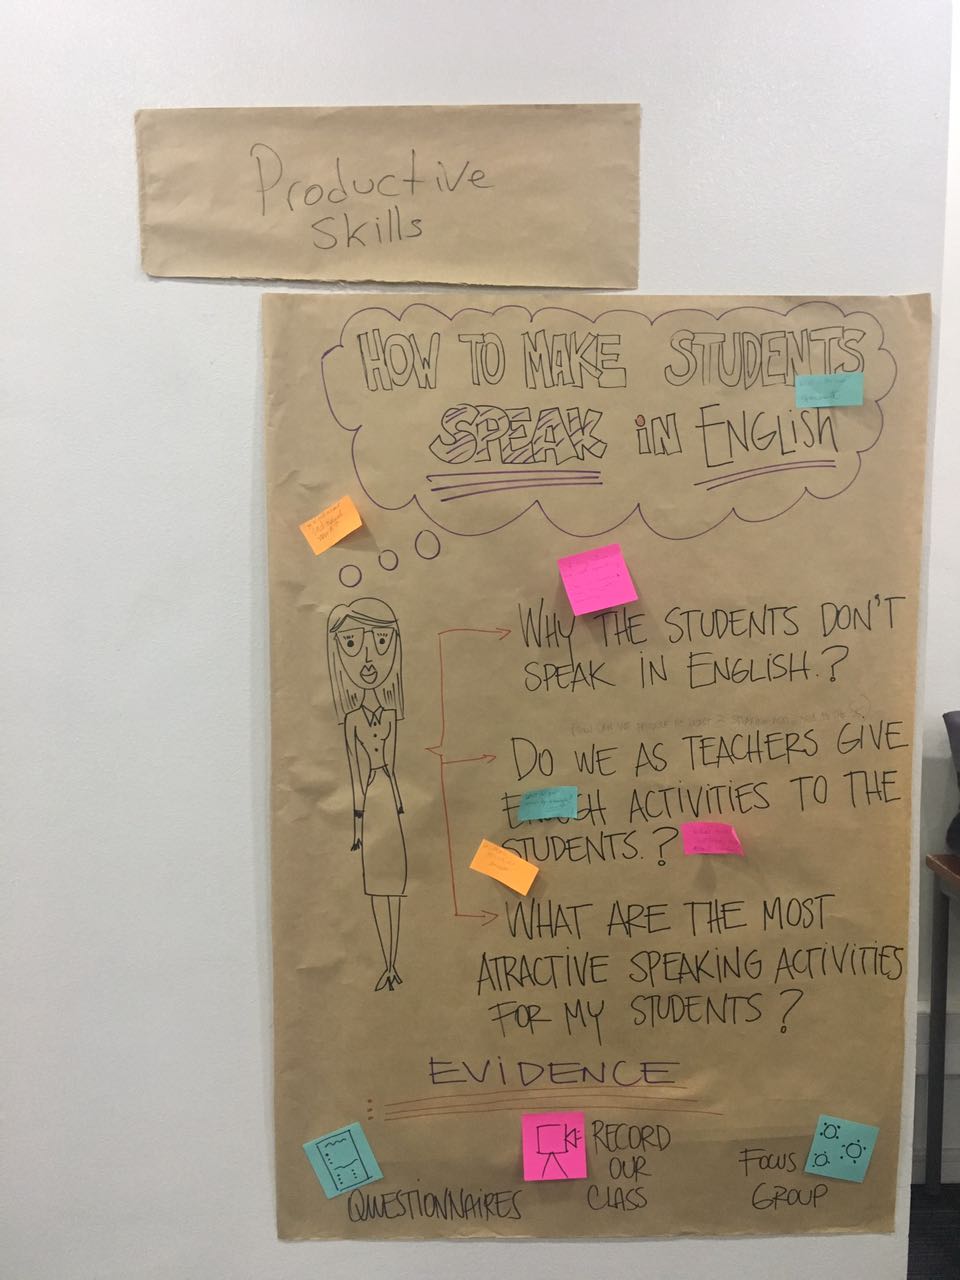 Productive
Skills
HOW TO MAKE STUDENTS
SPEAK IN ENGLISH
WHY THE STUDENTS DON'T
SPEAK IN ENGLISH.?
DO WE AS TEACHERS GIVE
ACTIVITIES TO THE
STUDENTS.?
WHAT ARE THE MOST
ATRACTIVE SPEAKING ACTIVITIES
FOR MY STUDENTS?
EVIDENCE
QUESTIONNAIRES
RECORD
OUR
CLASS
FOCUS
GROUP